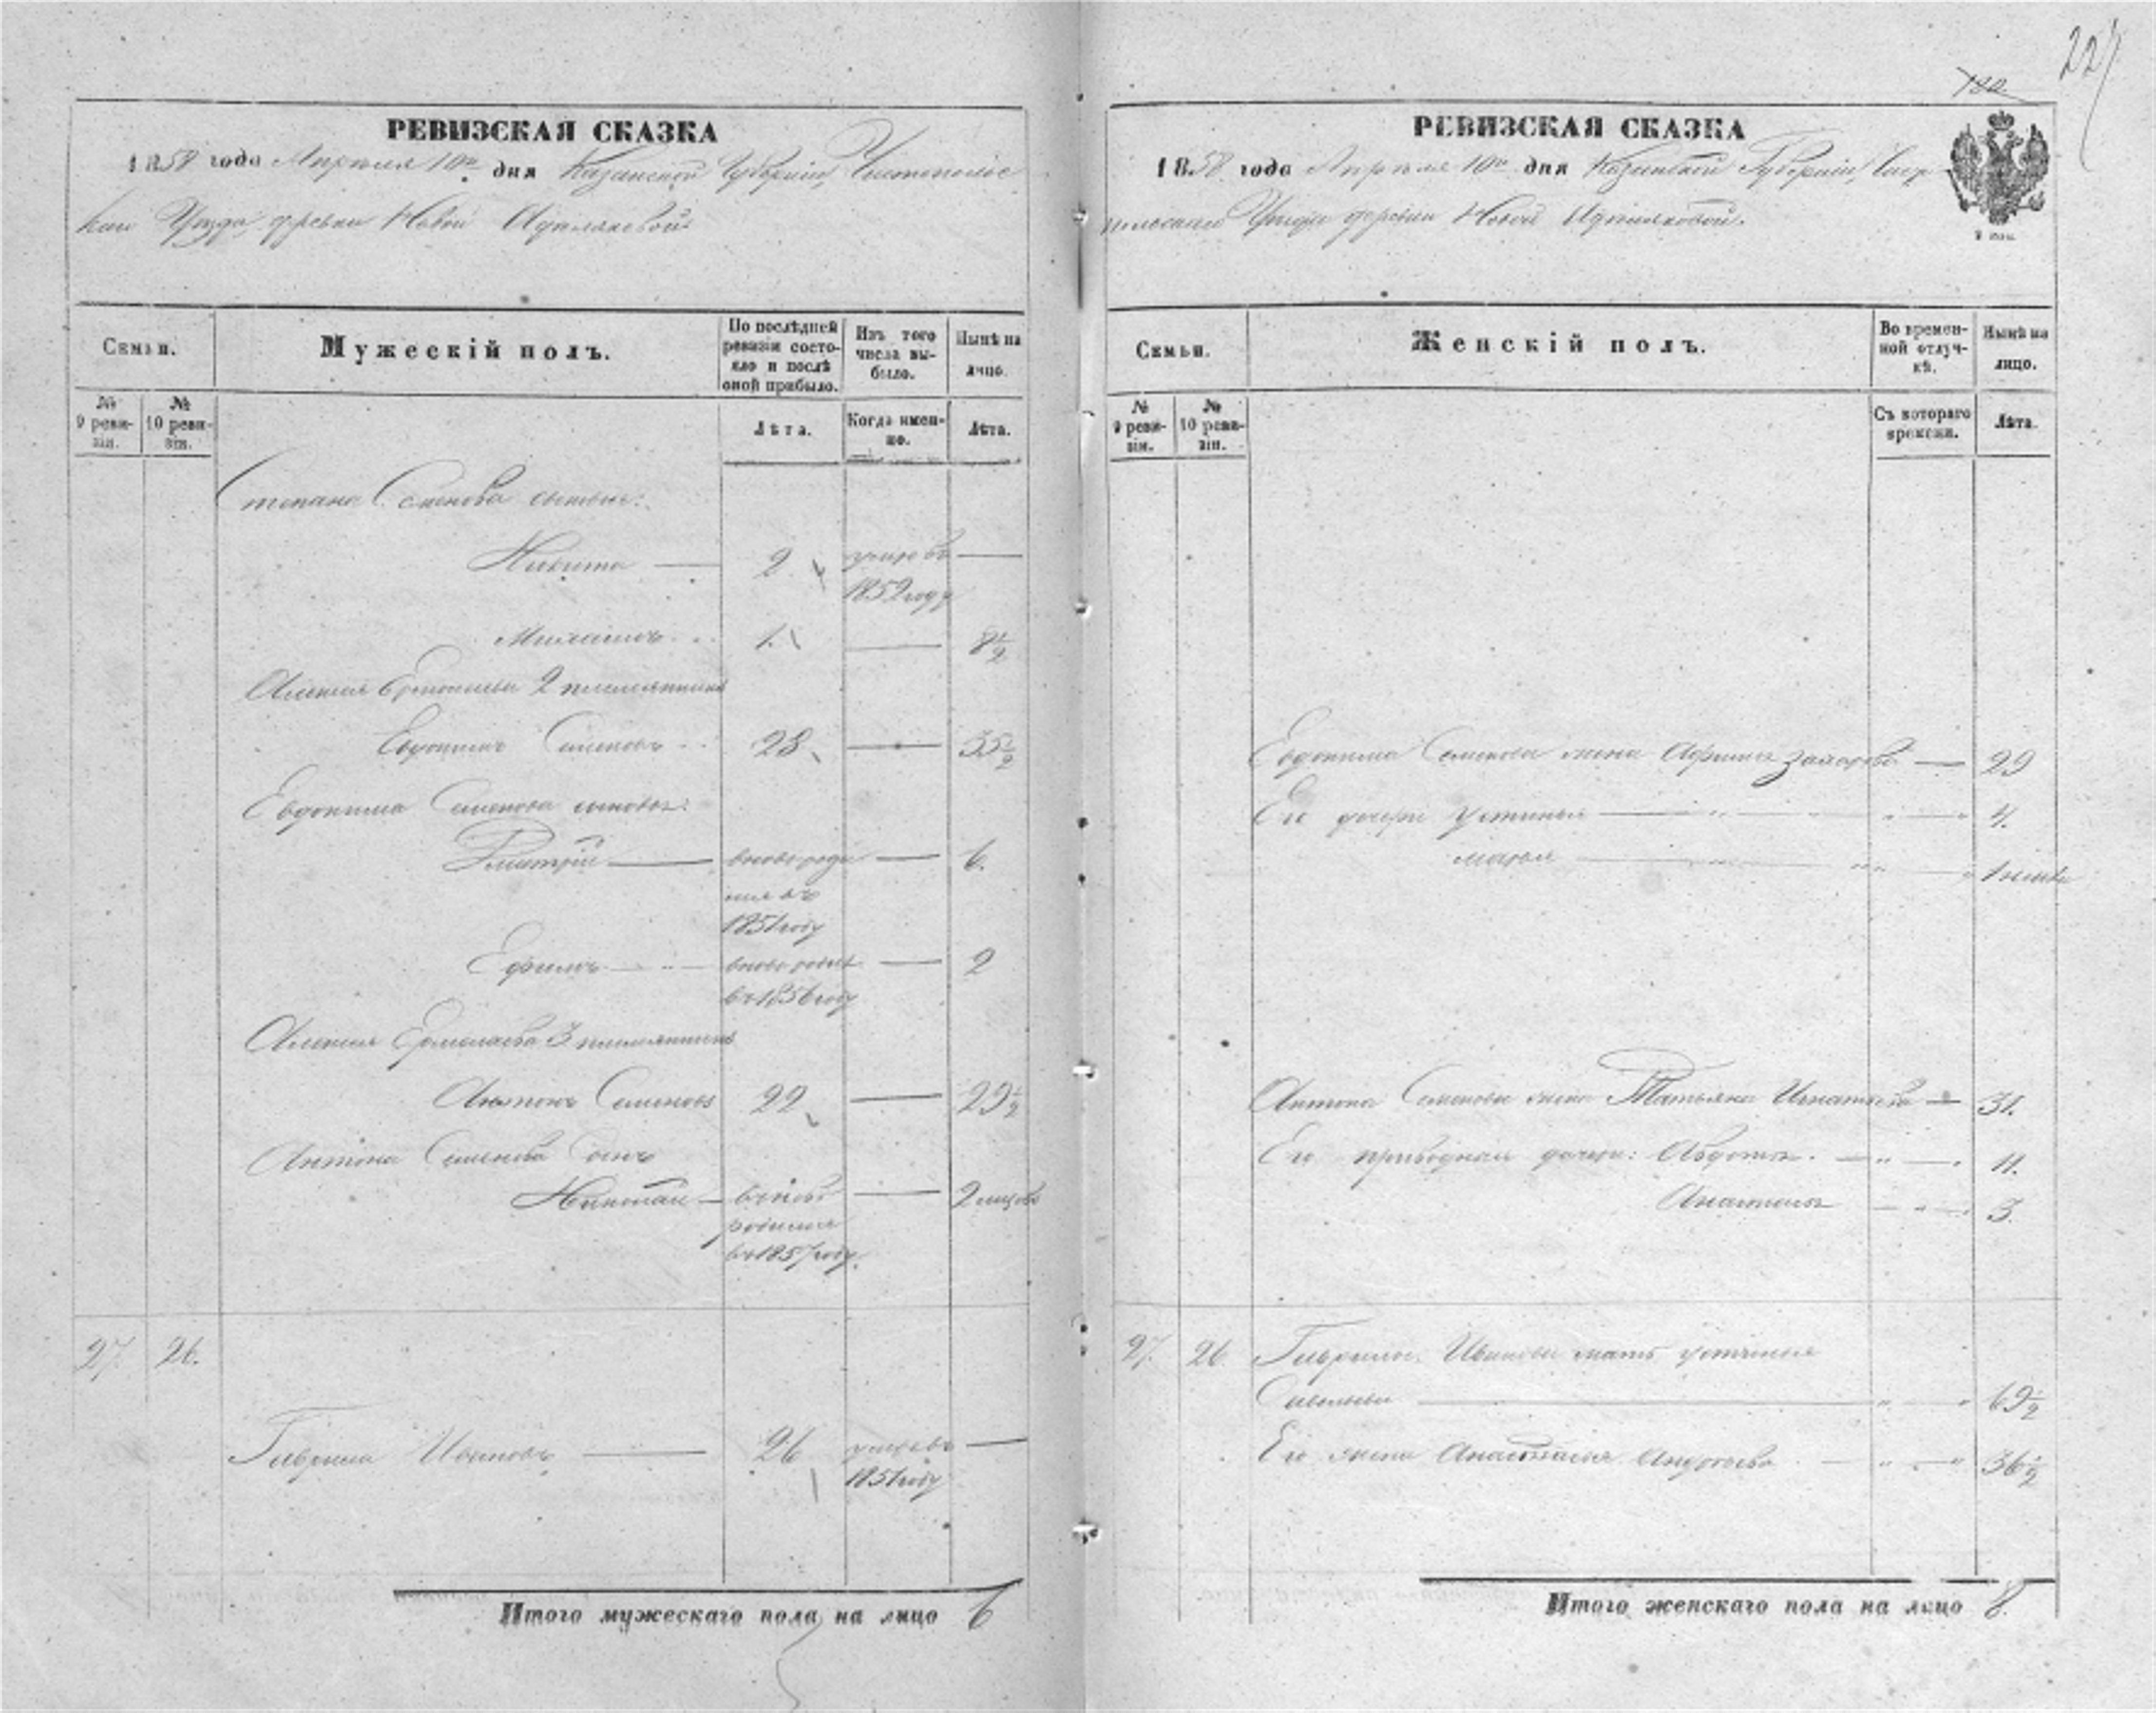 227
180
РЕВИЗСКАЯ СКАЗКА
1858 года Апреля 10го дня Казанской Губернии, Чистопольс
каго Уезда, деревни Новой
Семьи.
Мужескій полъ.
По послѣдней ревизіи состояло и послѣ оной прибыло.
Изъ того числа выбыло.
Нынѣ на лицо.
№ 9 реви-
зіи.
№ 10 реви-
зіи.
Лѣта.
Когда имен-
но.
Лѣта.
Степана Семенова сыновья:
Никита — 2 умеръ въ —
1852 году
1. — 8½
Алексея 2 племянникъ
Евдокимъ Семеновъ 28 — 35½
Евдокима Семенова сыновья:
Дмитрій — вновь роди — 6.
лся въ
1851 году
Ефимъ — вновь родил — 2
въ 1856 году
Алексея Ермолаева 3 племянникъ
Антонъ Семеновъ 22 — 29½
Антона Семенова сынъ
Николай — вновь — 2 месяцъ
родился
въ 1857 году.
27. 26.
Гаврила Ивановъ — 26 умеръ въ —
1851 году
Итого мужескаго пола на лицо 6
РЕВИЗСКАЯ СКАЗКА
1858 года Апреля 10го дня Казанской Губерніи, Чис
Уезда деревни Новой
Семьи.
Женскій полъ.
Во времен-
ной отлуч-
кѣ.
Нынѣ на
лицо.
№ 9 реви-
зіи.
№ 10 реви-
зіи.
Съ котораго
времени.
Лѣта.
Евдокима Семенова жена Афимья Захарова — 29
Его дочери Устинья — 4.
Марья — 1
Антона Семенова жена Татьяна Игнатьева — 31.
Его приводная дочери: Авдотья. — 11.
3.
27. 26 Гаврилы Иванова мать Устинья
69½
Его жена Анастасья Андреева — 36½
Итого женскаго пола на лицо 8.